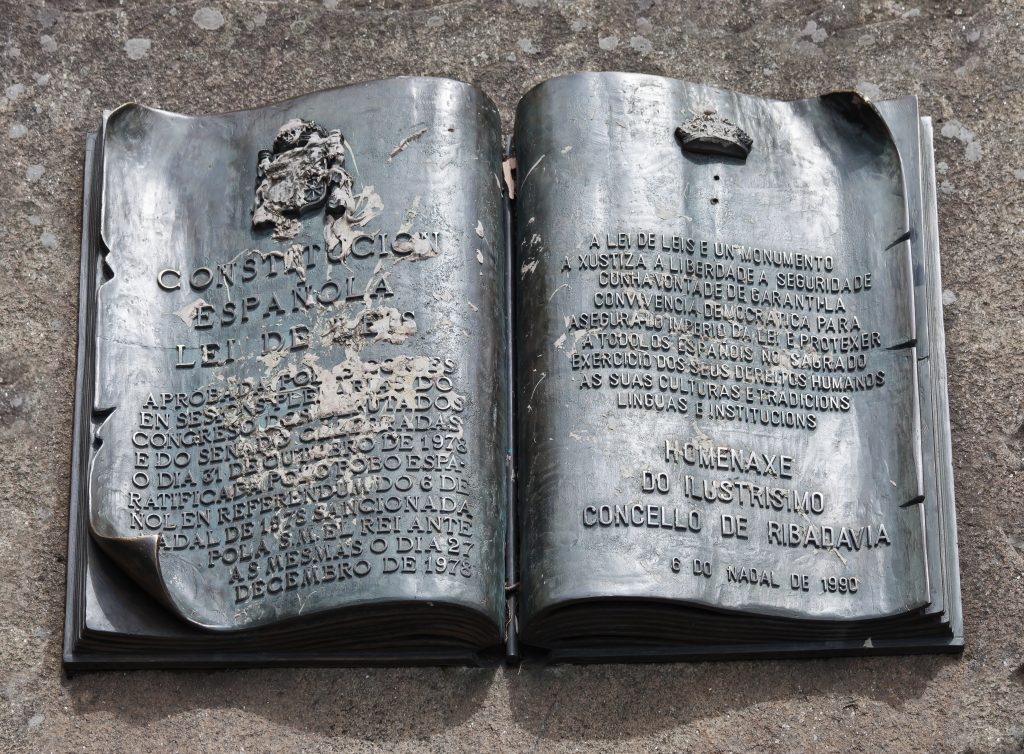 CONSTITUCION
ESPAÑOLA
LEI DE LEIS
APROBADA POLAS CORTES
EN SESIONS PLENARIAS DO
CONGRESO DOS DEPUTADOS
E DO SENADO CELEBRADAS
O DIA 31 DE OUTUBRO DE 1978
RATIFICADA POLO POBO ESPA-
ÑOL EN REFERENDUM DO 6 DE
NADAL DE 1978 SANCIONADA
POLA S.M. EL REI ANTE
AS MESMAS O DIA 27
DECEMBRO DE 1978
A LEI DE LEIS E UN MONUMENTO
A XUSTIZA A LIBERDADE A SEGURIDADE
CONHA VONTADE DE GARANTHLA
CONVIVENCIA DEMOCRATICA PARA
ASEGURA-LO IMPERIO DA LEI E PROTEXER
A TODOLOS ESPAÑOIS NO SAGRADO
EXERCICIO DOS SEUS DEREITOS HUMANOS
AS SUAS CULTURAS E TRADICIONS
LINGUAS E INSTITUCIONS
HOMENAXE
DO ILUSTRISIMO
CONCELLO DE RIBADAVIA
6 DO NADAL DE 1990